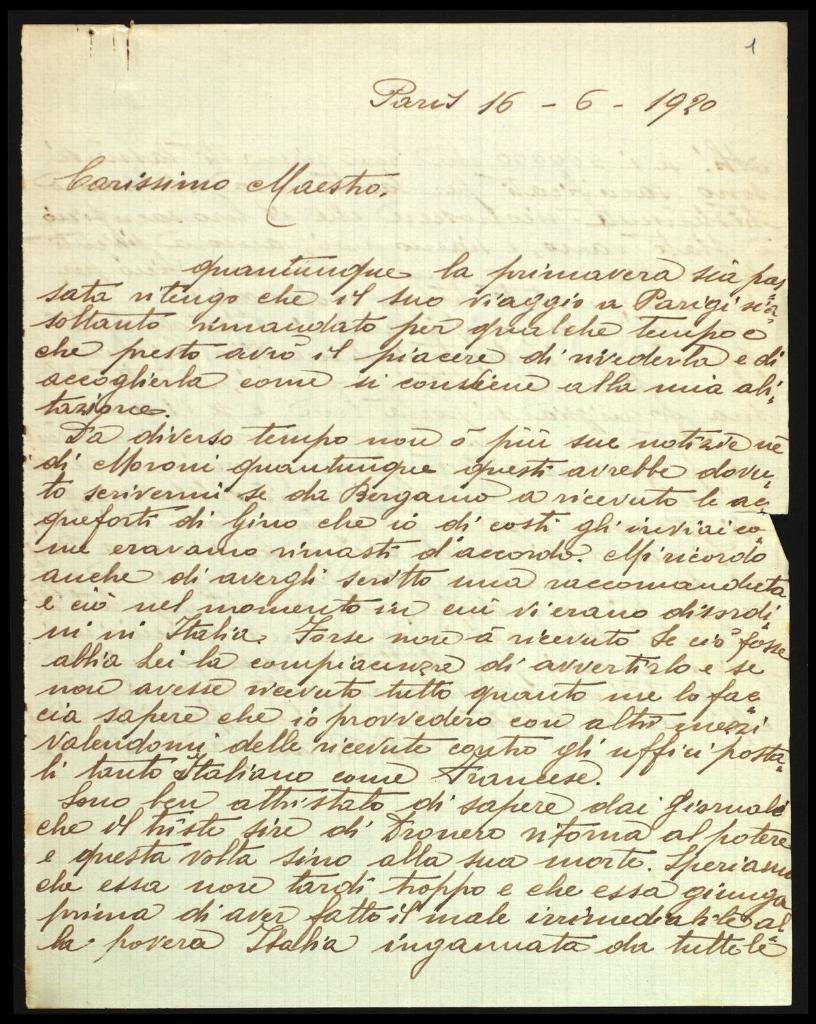 1
Paris 16 - 6 - 1920
Carissimo Maestro.
quantunque la primavera sia pas=
sata ritengo che il suo viaggio a Parigi sia
soltanto rimandato per qualche tempo e
che presto avrò il piacere di rivederla e di
accoglierla come si conviene alla mia abi=
tazione.
Da diverso tempo non ò più sue notizie nè
di Moroni quantunque questi avrebbe dovu=
to scrivermi se da Bergamo a ricevuto le ac=
queforti di Gino che io di costì gli inviai co=
me eravamo rimasti d'accordo. Mi ricordo
anche di avergli scritto una raccomandata
e ciò nel momento in cui vi erano disordi=
ni in Italia. Forse non à ricevuto. Se ciò fosse
abbia Lei la compiacenza di avvertirlo e se
non avesse ricevuto tutto quanto me lo fac=
cia sapere che io provvederò con altri mezzi
valendomi delle ricevute contro gli uffici posta=
li tanto Italiano come Francese.
Sono ben attristato di sapere dai giornali
che il triste sire di Dronero ritorna al potere
e questa volta sino alla sua morte. Speriamo
che essa non tardi troppo e che essa giunga
prima di aver fatto il male irrimediabile al=
la povera Italia ingannata da tutte le